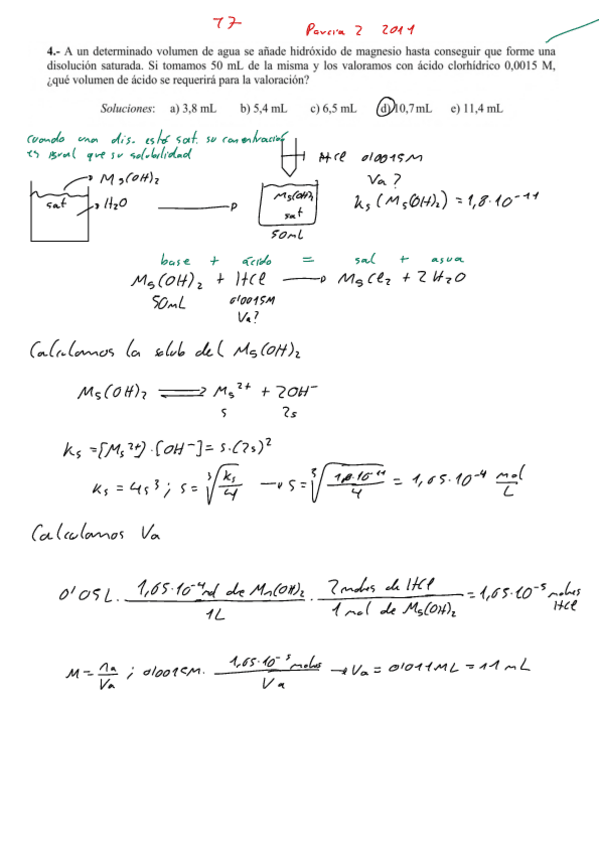 17
Parcia 2 2011
4.- A un determinado volumen de agua se añade hidróxido de magnesio hasta conseguir que forme una
disolución saturada. Si tomamos 50 mL de la misma y los valoramos con ácido clorhídrico 0,0015 M,
¿qué volumen de ácido se requerirá para la valoración?
Soluciones: a) 3,8 mL b) 5,4 mL c) 6,5 mL d) 10,7 mL e) 11,4 mL
Cuando una dis. está sat. su concentración
es igual que su solubilidad
Mg(OH)₂
sat
H₂O
Mg(OH)₂
sat
50mL
HCl 0'0015M
Va?
Ks (Mg(OH)₂) = 1,8·10⁻¹¹
base + ácido = sal + agua
Mg(OH)₂ + HCl → MgCl₂ + 2H₂O
50mL 0'0015M
Va?
Calculamos la solub del Mg(OH)₂
Mg(OH)₂ ⇌ Mg²⁺ + 2OH⁻
s 2s
Ks = [Mg²⁺]·[OH⁻] = s·(2s)²
Ks = 4s³ ; s = ∛(Ks/4) → s = ∛(1,8·10⁻¹¹/4) = 1,65·10⁻⁴ mol/L
Calculamos Va
0'05L · 1,65·10⁻⁴ mol de Mg(OH)₂/1L · 2 moles de HCl/1 mol de Mg(OH)₂ = 1,65·10⁻⁵ moles HCl
M = na/Va ; 0'0015M · 1,65·10⁻⁵ moles/Va → Va = 0'011ML = 11 mL